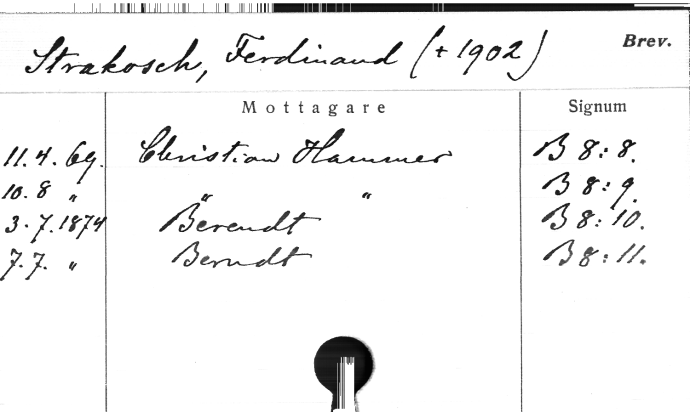 Strakosch, Ferdinand (+ 1902) Brev.
Mottagare Signum
11.4.69. Christian Hammer B 8:8.
10.8 " " " B 8:9.
3.7.1874 Berendt B 8:10.
7.7. " Berndt B 8:11.